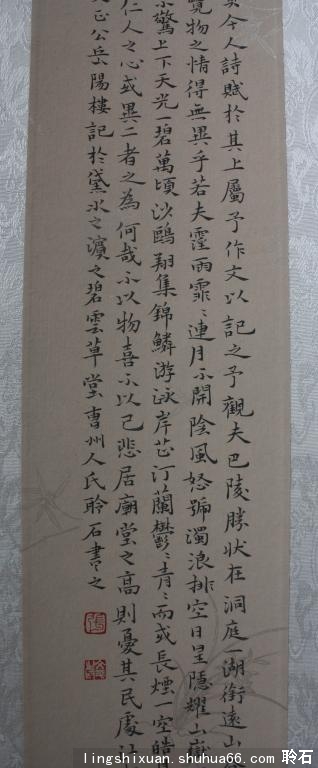 今人詩賦於其上屬予作文以記之予觀夫巴陵勝狀在洞庭一湖銜遠山
覽物之情得無異乎若夫霪雨霏〻連月不開陰風怒號濁浪排空日星隱耀山嶽
驚上下天光一碧萬頃沙鷗翔集錦鱗游泳岸芷汀蘭鬱〻青〻而或長煙一空皓
仁人之心或異二者之為何哉不以物喜不以己悲居廟堂之高則憂其民處
正公岳陽樓記於黛水之濱之碧雲草堂曹州人氏聆石書之
lingshixuan.shuhua66.com 聆石